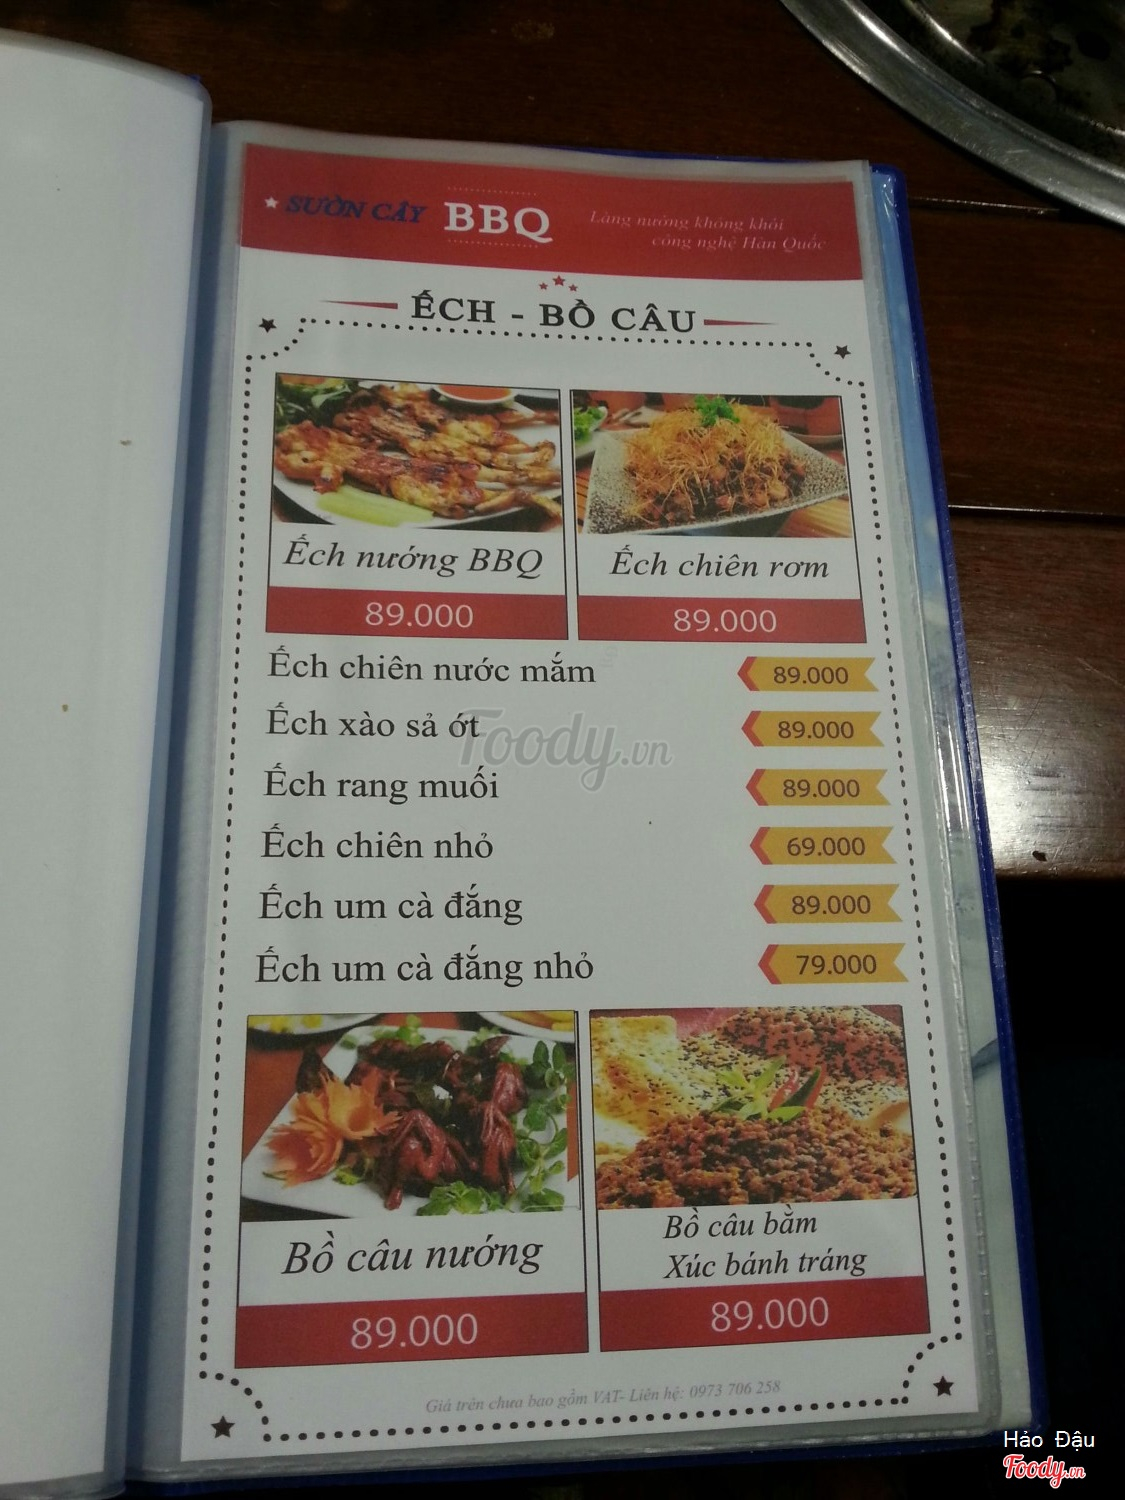 SƯỜN CÂY BBQ
Làng nướng không khói
công nghệ Hàn Quốc
ẾCH - BỒ CÂU
Ếch nướng BBQ
89.000
Ếch chiên rơm
89.000
Ếch chiên nước mắm 89.000
Ếch xào sả ớt 89.000
Foody.vn
Ếch rang muối 89.000
Ếch chiên nhỏ 69.000
Ếch um cà đắng 89.000
Ếch um cà đắng nhỏ 79.000
Bồ câu nướng
89.000
Bồ câu bằm
Xúc bánh tráng
89.000
Giá trên chưa bao gồm VAT- Liên hệ: 0973 706 258
Hảo Đậu
Foody.vn